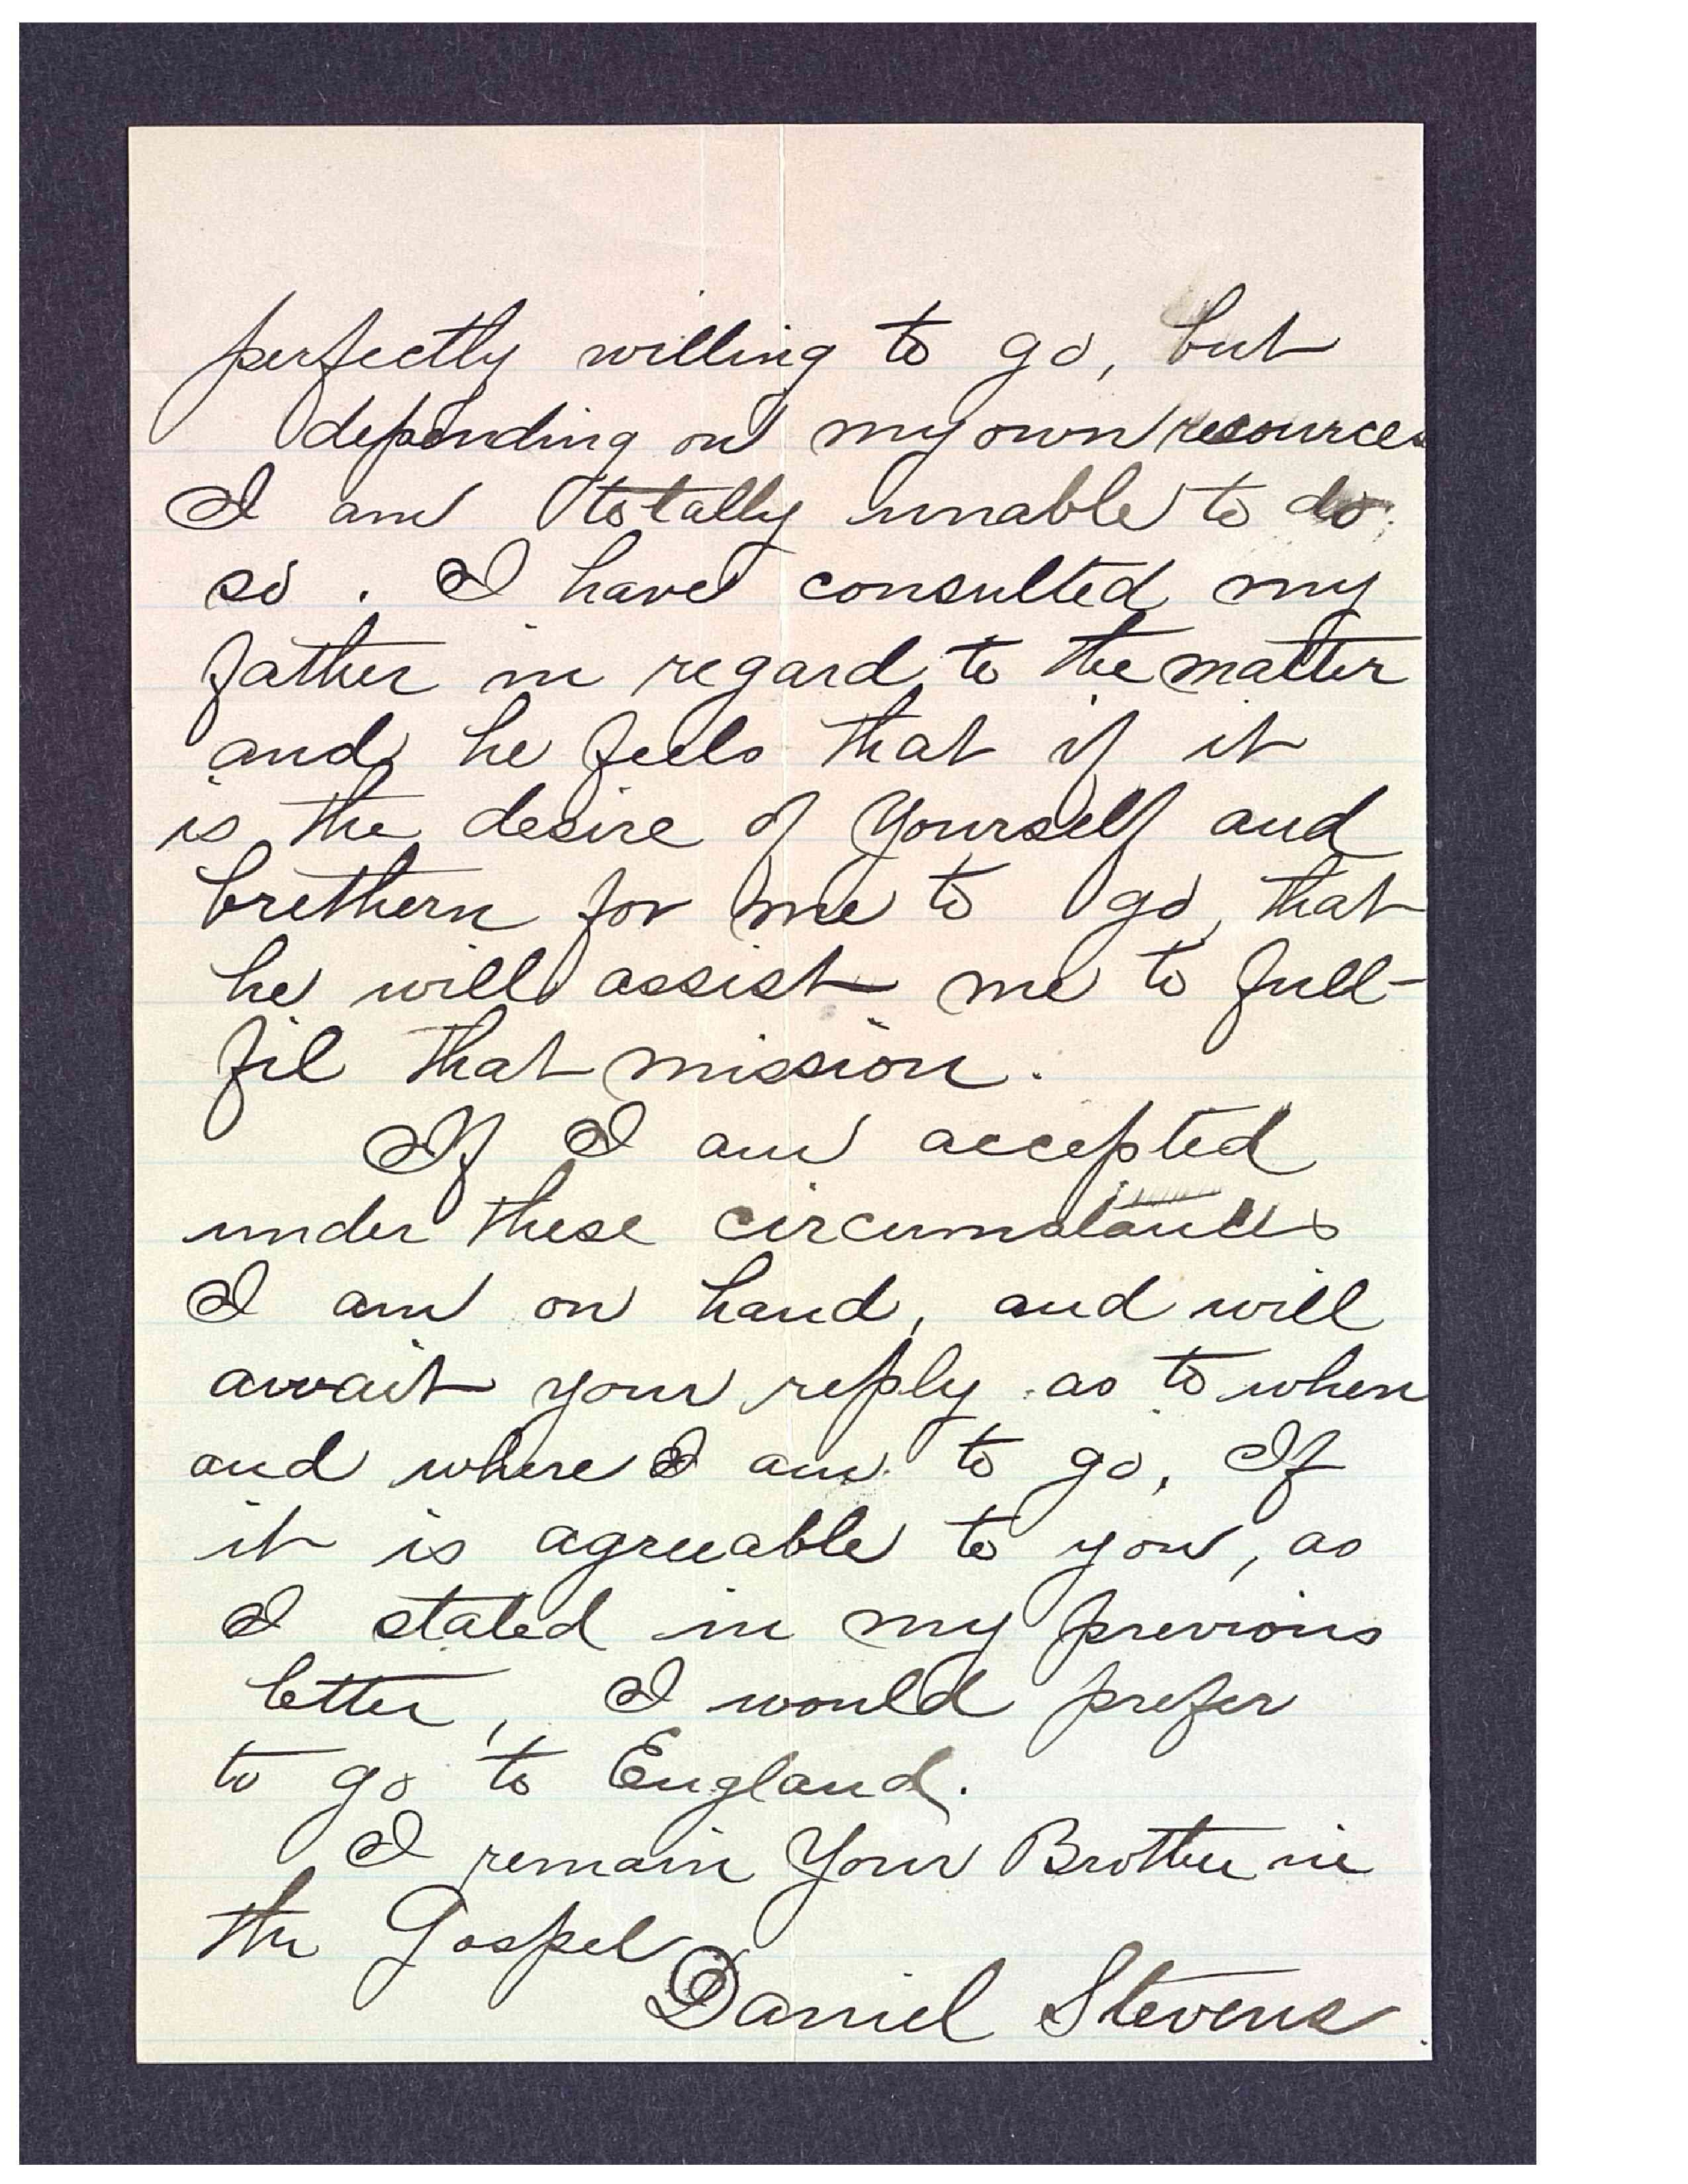 perfectly willing to go, but
depending on my own resources
I am totally unable to do
so. I have consulted my
father in regard to the matter
and he feels that if it
is the desire of Yourself and
brethern for me to go, that
he will assist me to full-
fil that mission.
If I am accepted
under these circumstances
I am on hand, and will
await your reply as to when
and where I am to go, If
it is agreeable to you, as
I stated in my previous
letter, I would prefer
to go to England.
I remain Your Brother in
the Gospel
Daniel Stevens